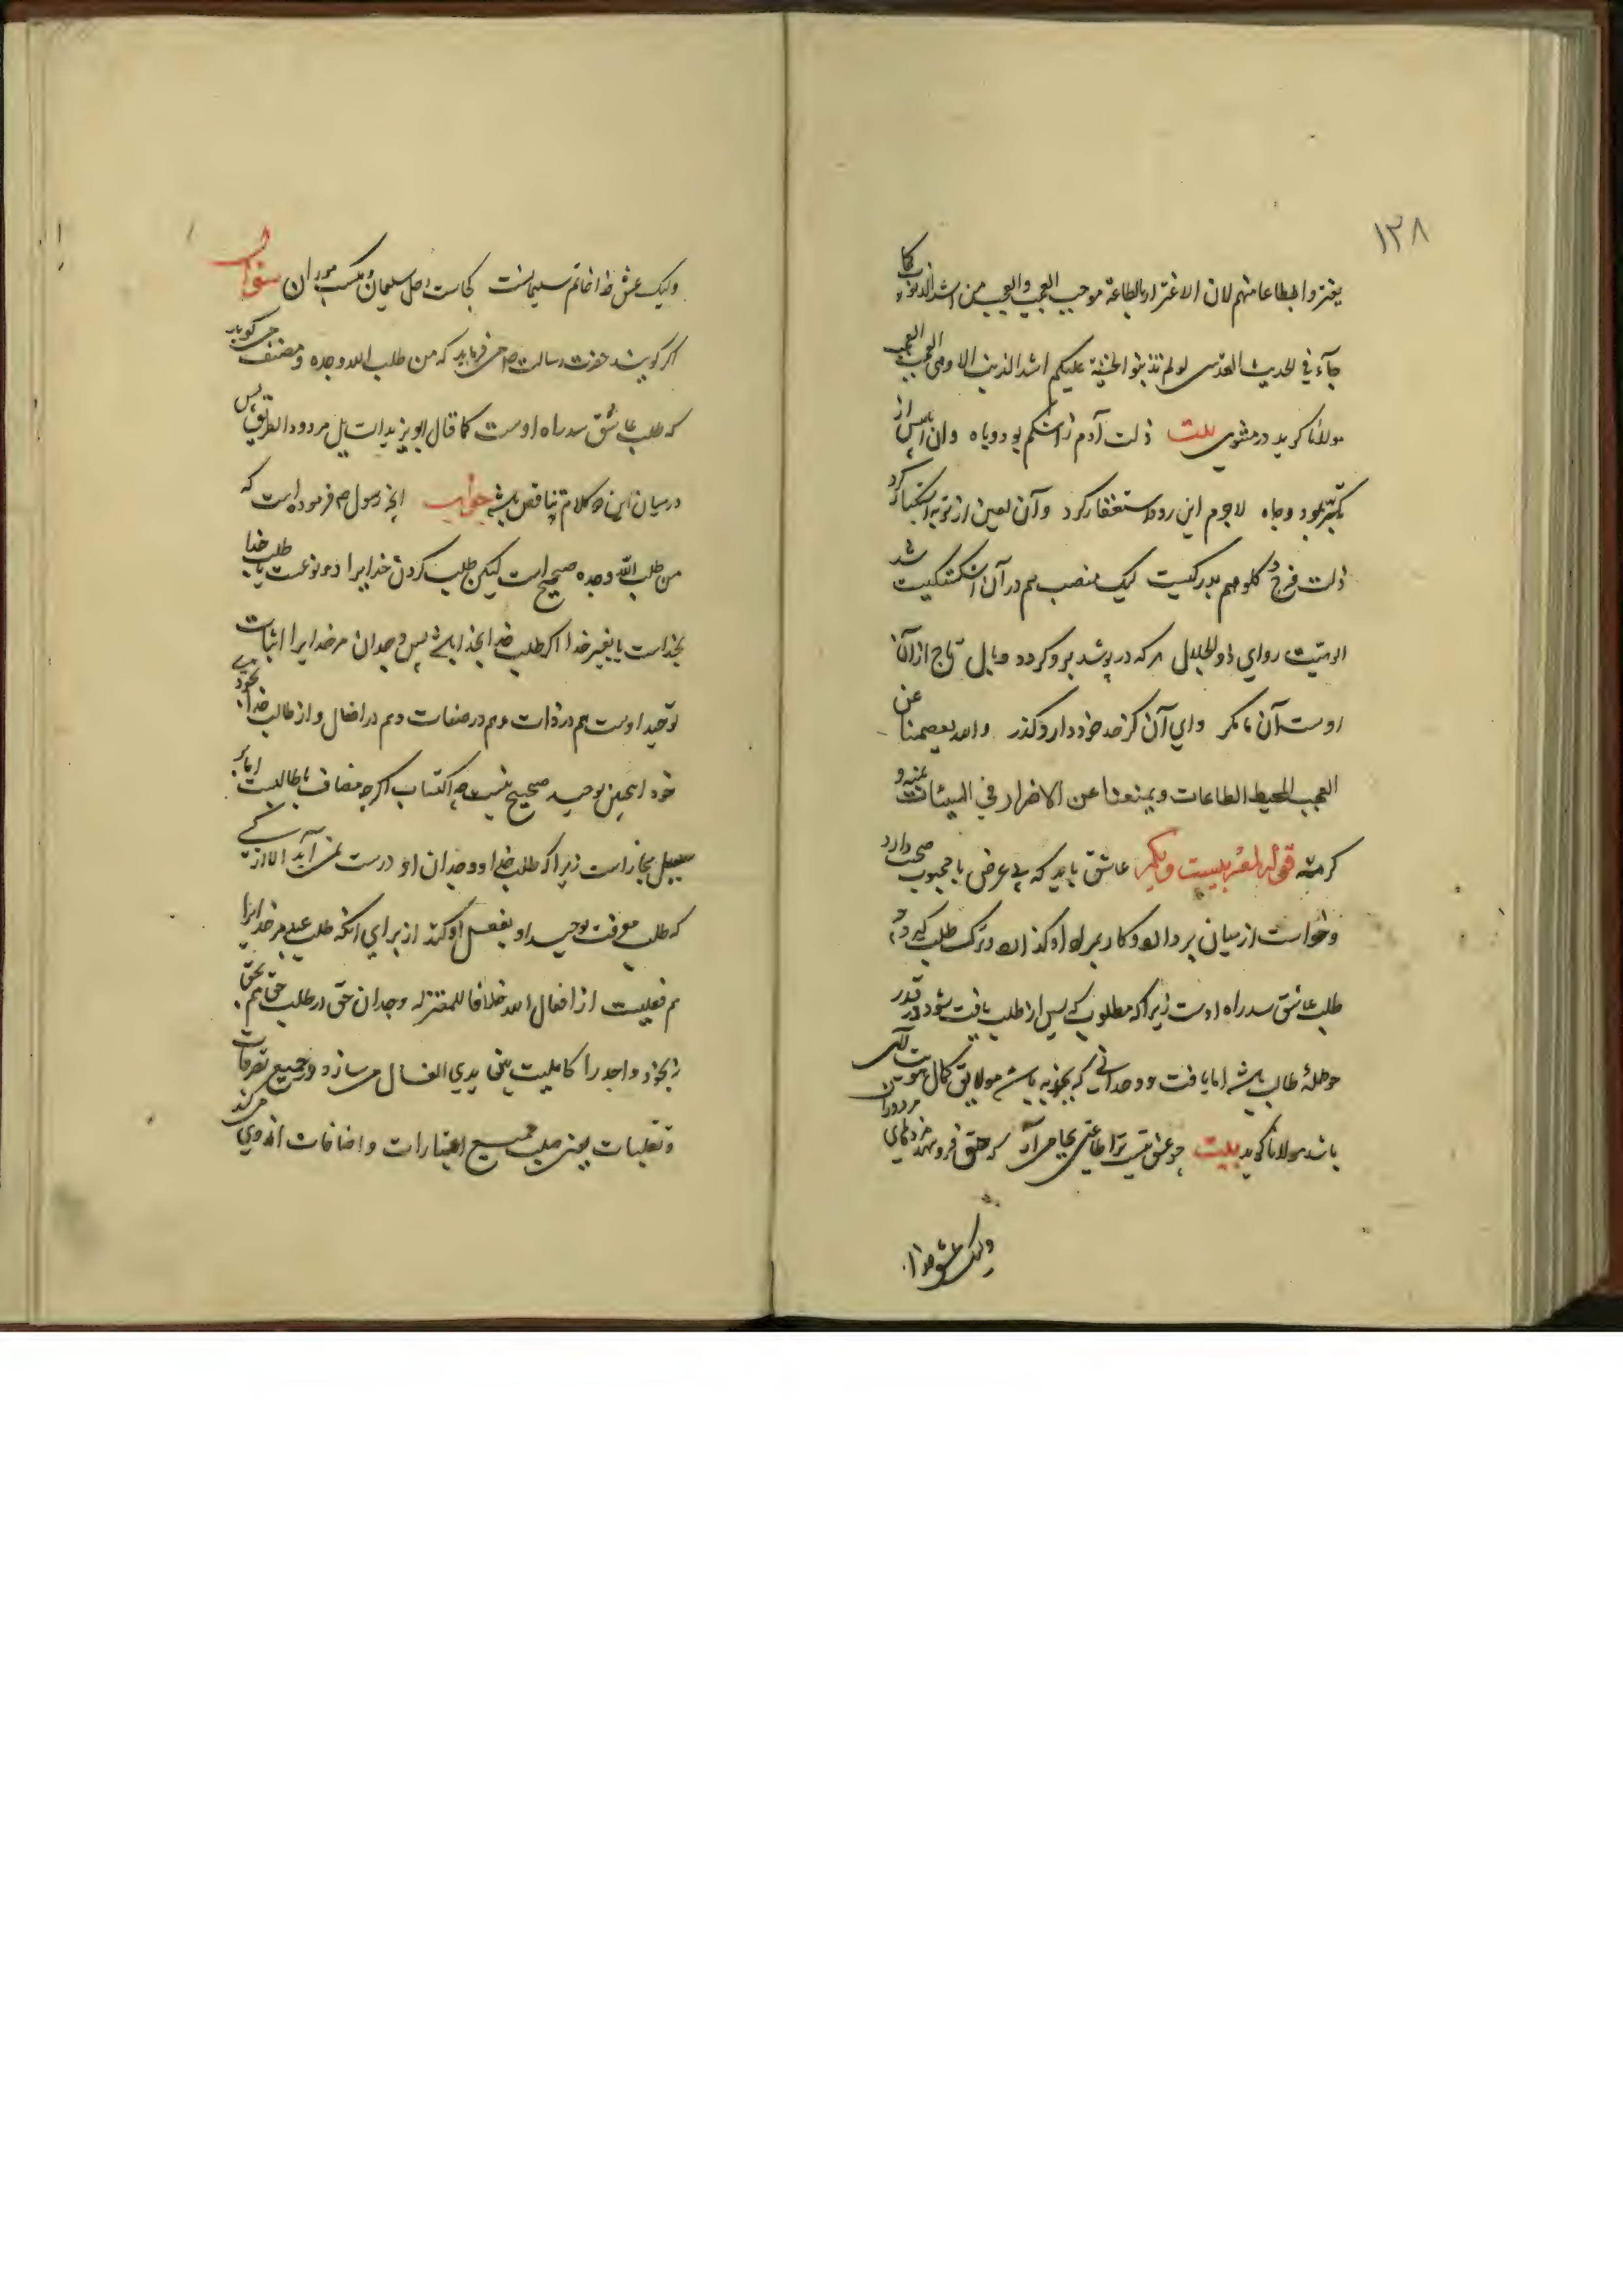 ١٣٨
یغتروا بطاعاتهم لان الاغترار بالطاعة موجب العجب والعجب من اشد الذنوب کما
جآء فی الحدیث القدسی لو لم تذنبوا لخشیت علیکم اشد الذنب الا وهی العجب العجب
مولانا کوید در مثنوی بیت ذلت آدم ز اشکم بود و باه وان ابلیس از
تکبر بود و جاه لاجرم این زود استغفار کرد وآن لعین از توبه استکبار کرد
ذلت فرج و کلو هم بدرکیست لیک منصب هم در آن اشکستکیست شد
الوهیت ردای ذو الجلال هرکه در پوشد برو کردد وبال تاج از آن
اوست آن ما کمر وای آن کز حد خود دارد کذر والله یعصمنا عن
العجب المحیط الطاعات ویمنعنا عن الاضرار فی السیئات بمنه و
کرمه قوله لمعه بیست ویکم عاشق باید که بی غرض با محبوب صحبت دارد
وخواست از میان بردارد وکار بمراد او کذارد وترک طلب کیرد چه
طلب عاشق سد راه اوست زیرا که مطلوب که پس از طلب یافت شود در قدر
حوصلهٔ طالب باشد اما یافت و وجدانی که بجذبه باشد مولایق کمال
باشد مولانا کوید بیت چو عشق
ولیک عشق خدا
ولیک عشق خدا خاتم سلیمانست کجاست دخل سلیمان و مکسب موران سؤال
اکر کویند حضرت رسالت ص می فرماید که من طلب الله وجده ومصنف می کوید
که طلب عاشق سد راه اوست کما قال ابو یزید مردود الطریق پس
در میان این دو کلام تناقض باشد جواب آنچه رسول ص فرموده است که
من طلب الله وجده صحیح است لیکن طلب کردن خدایرا دو نوعست یا طلب خدا
بخداست یا بغیر خدا اکر طلب خدا بخدا باشد پس وجدان مر خدایرا اثبات
توحید اوست هم در ذات وهم در صفات وهم در افعال واز طالب خدا بخود
خود این توحید صحیح نیست چه اکتساب اکرچه مضاف بطالبست اما بر
سبیل مجاز است زیرا که طلب خدا ووجدان او درست نمی آید الا از کسی
که طلب معرفت توحید او بفعل او کند از برای آنکه طلب عبد مر خدایرا
هم فعلیست از افعال الله خلافا للمعتزله وجدان حق در طلب حق هم بحق
نه بخود واجد را کالمیت بین یدی الغسال می سازد ودر جمیع تصرفات
وتقلبات یعنی سلب جمیع اعتبارات واضافات از وی می کند